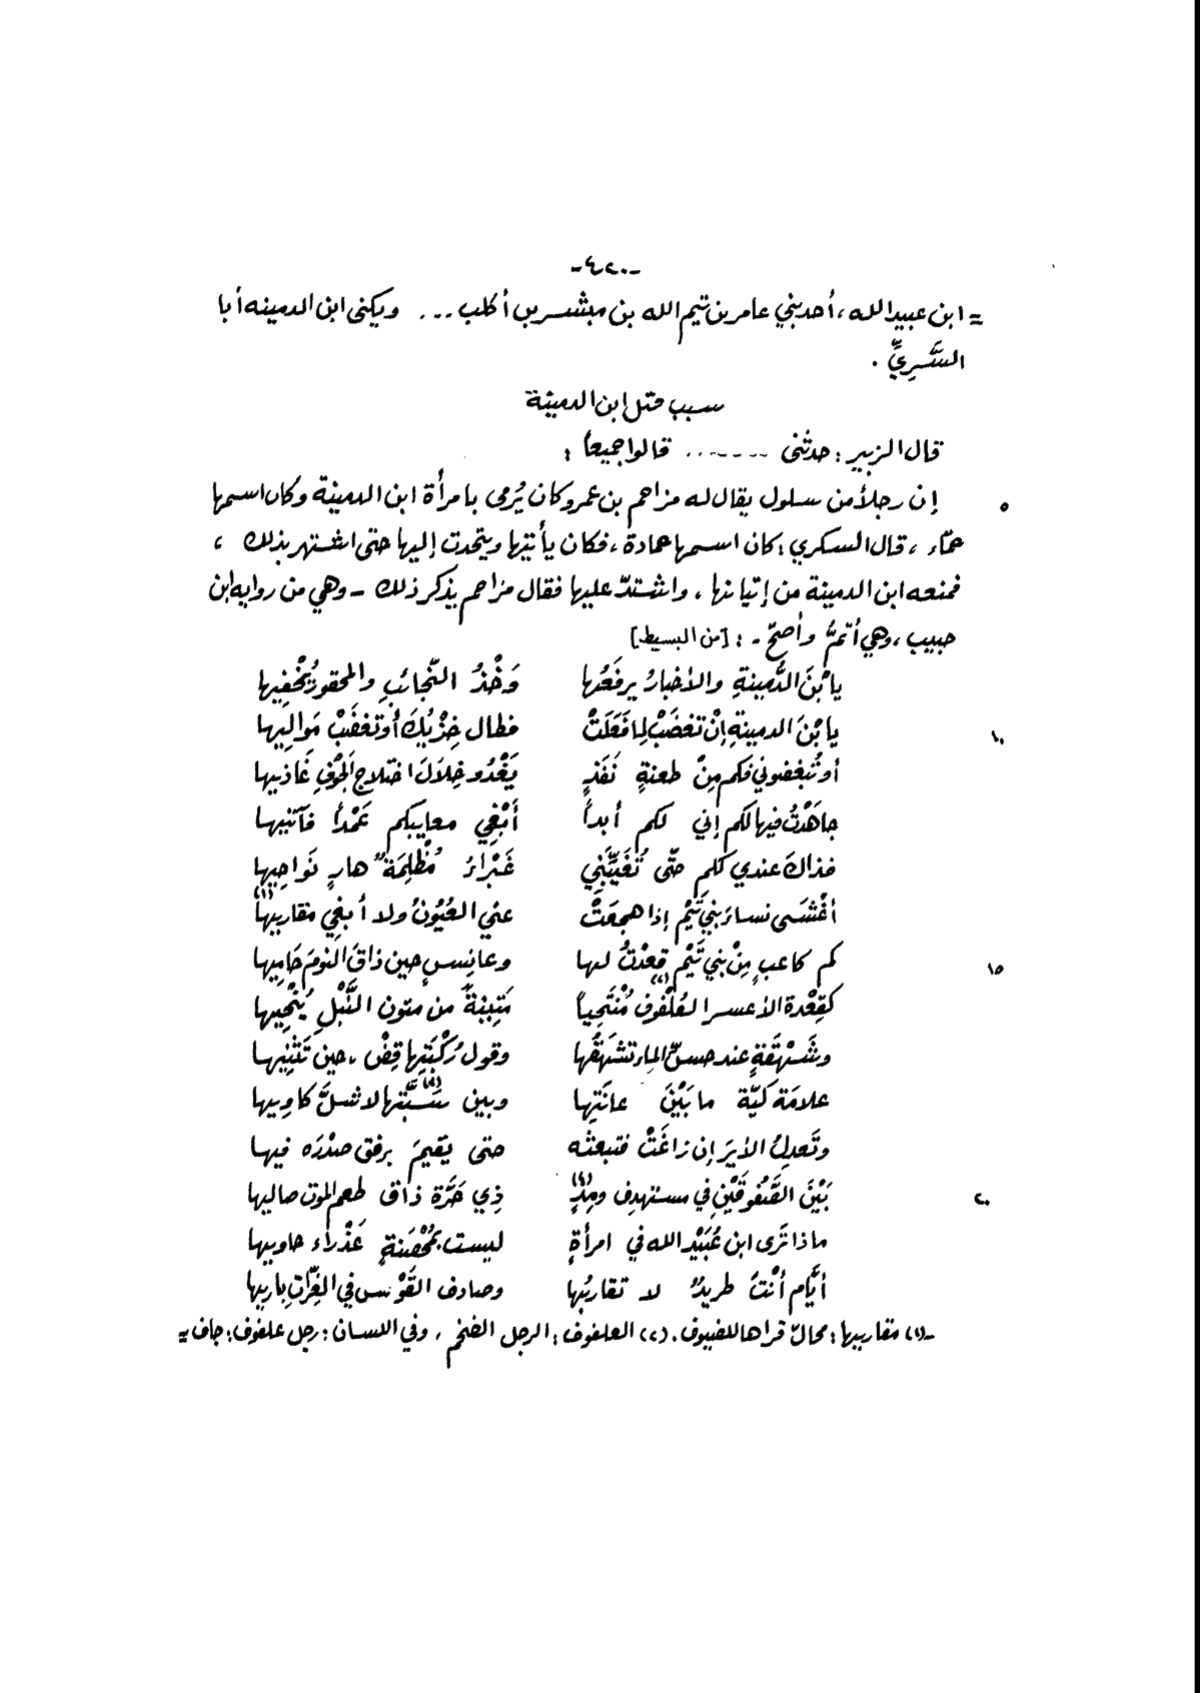 -٤٢٠-
= ابن عبيد الله ، أحد بني عامر بن تيم الله بن مبشر بن أكلب ... ويكنى ابن الدمينه أبا
السَّرِيِّ .
سبب قتل ابن الدمينة
قال الزبير : حدثنى ....... قالوا جميعاً :
٥ إن رجلاً من سلول يقال له مزاحم بن عمرو كان يُرمى بامرأة ابن الدمينة وكان اسمها
حمّاء ، قال السكري : كان اسمها حمادة ، فكان يأتيها ويتحدث إليها حتى اشتهر بذلك ،
فمنعه ابن الدمينة من إتيانها ، واشتدّ عليها فقال مزاحم يذكر ذلك - وهي من روايه ابن
حبيب ، وهي أتمُّ وأصحّ - : [من البسيط]
يا بْنَ الدُّمينةِ والأخبارُ يرفَعُها وَخْدُ النّجائبِ والمحقورُ يُخْفيها
١٠ يا بْنَ الدمينةِ إنْ تغضَبْ لِما فَعَلَتْ فطال خِزْيُكَ أو تغضَبْ مَوالِيها
أو تُبغضوني فكم مِنْ طعنةٍ نَفَذٍ يَغْدُو خِلَالَ اختلاجِ الجوْفِ غَاذيها
جاهَدْتُ فيها لكم إني لكم أبداً أَبْغِي معايبكم عَمْداً فآتيها
فذاكَ عندي لكم حتّى تُغَيّبَني غَبْراءُ مُظْلِمَةٌ هارٍ نَواحِيها
أغْشَى نساءَ بني تَيْمٍ إذا هجعَتْ عني العُيُونُ ولا أبغِي مقاريها (١)
١٥ كم كاعبٍ مِنْ بني تَيْمٍ قعدْتُ لها وعانِسٍ حين ذاقَ النومَ حَامِيها
كقِعْدة الأعسر العُلْفوفِ (٢) مُنْتَحِياً مَتِينةً من متون النَّبْلِ يُنْحِيها
وشَهْقَةٍ عند حسّ الماء تشهَقُها وقول رُكْبَتِها قِضْ ، حين تَثْنِيها
علامَة كَيّة ما بَيْنَ عانَتِها وبين سَبَّتها (٣) لا شلَّ كاوِيها
وتَعدِلُ الأيرَ إن زاغَتْ فتبعثه حتى يقيمَ برفق صدْرَه فيها
٢٠ بَيْنَ الصَّفُوقَيْنِ في مستهدِفٍ ومِدٍ (٤) ذِي حَرَّة ذاق طعم الموت صاليها
ماذا تَرى ابن عُبَيْد الله في امرأةٍ ليست بمُحْصَنةٍ عَذْراء حاويها
أيّام أنْتَ طريدٌ لا تقاربُها وصادف القَوْس في الغِرّات باريها
-(١) مقاريها : محالّ قراها للضيوف . (٢) العلفوف : الرجل الضخم ، وفي اللسان : رجل علفوف : جاف =